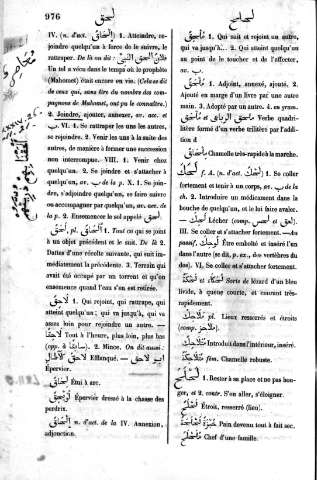 976
لحق
لحلح
IV. (n. d'act. إِلْحَاق) 1. Atteindre, re-
joindre quelqu'un à force de le suivre, le
rattraper. De là on dit
Un tel a vécu dans le temps où le prophète
(Mahomet) était encore en vie. (Cela se dit
de ceux qui, sans être du nombre des com-
pagnons de Mahomet, ont pu le connaître.)
2. Joindre, ajouter, annexer, av. acc. et
ب. VI. 1. Se rattraper les uns les autres,
se rejoindre. 2. Se suivre les uns les
autres, de manière à former une succession
non interrompue. VIII. 1. Venir chez
quelqu'un. 2. Se joindre et s'attacher à
quelqu'un, av. ب de la p. X. 1. Se join-
dre, s'adjoindre quelqu'un, se faire suivre
ou accompagner par quelqu'un, av. acc. de
la p. 2. Ensemencer le sol appelé
1. Tout ce qui se joint
à un objet précédent et le suit. De là 2.
Dattes d'une récolte suivante, qui suit im-
médiatement la précédente. 3. Terrain qui
avait été occupé par un torrent et qu'on
ensemence quand l'eau s'en est retirée.
لَاحِق 1. Qui rejoint, qui rattrape, qui
atteint quelqu'un; qui va jusqu'à, qui va
assez loin pour rejoindre un autre. —
لاحقا Tout à l'heure, plus loin, plus bas
(opp. à سابقا). 2. Mince. On dit aussi:
لاحق الآطال Efflanqué. — ابو لاحق
Épervier.
Ému à arc.
Épervier dressé à la chasse des
perdrix.
إِلْحَاق n. d'act. de la IV. Annexion,
adjonction.
مُلْحِق 1. Qui suit et rejoint un autre,
qui va jusqu'à... 2. Qui atteint quelqu'un
au point de le toucher et de l'affecter,
av. ب.
مُلْحَق 1. Adjoint, annexé, ajouté. 2.
Ajouté en marge d'un livre par une autre
main. 3. Adopté par un autre. 4. en gram.
ملحق الرباعى Verbe quadri-
litère formé d'un verbe trilitère par l'addi-
tion d
Chamelle très-rapide à la marche.
لحك f. A. (n. d'act. لحك) 1. Se coller
fortement et tenir à un corps, av. ب de la
ch. 2. Introduire un médicament dans la
bouche de quelqu'un, et le lui faire avaler.
— لحك Lécher (comp. لعق et لحس).
III. Se coller et s'attacher fortement. — Au
passif, لوحك Être emboîté et inséré l'un
dans l'autre (se dit, p. ex., des vertèbres du
dos). VI. Se coller et s'attacher fortement.
Sorte de lézard d'un bleu
livide, à queue courte, et courant très-
rapidement.
pl. Lieux resserrés et étroits
(comp. ملاحز).
Introduit dans l'intérieur, inséré.
fém. Chamelle robuste.
لحلح 1. Rester à sa place et ne pas bou-
ger, et 2. contr. S'en aller, s'éloigner.
Étroit, resserré (lieu).
Pain devenu tout à fait sec.
Chef d'une famille.